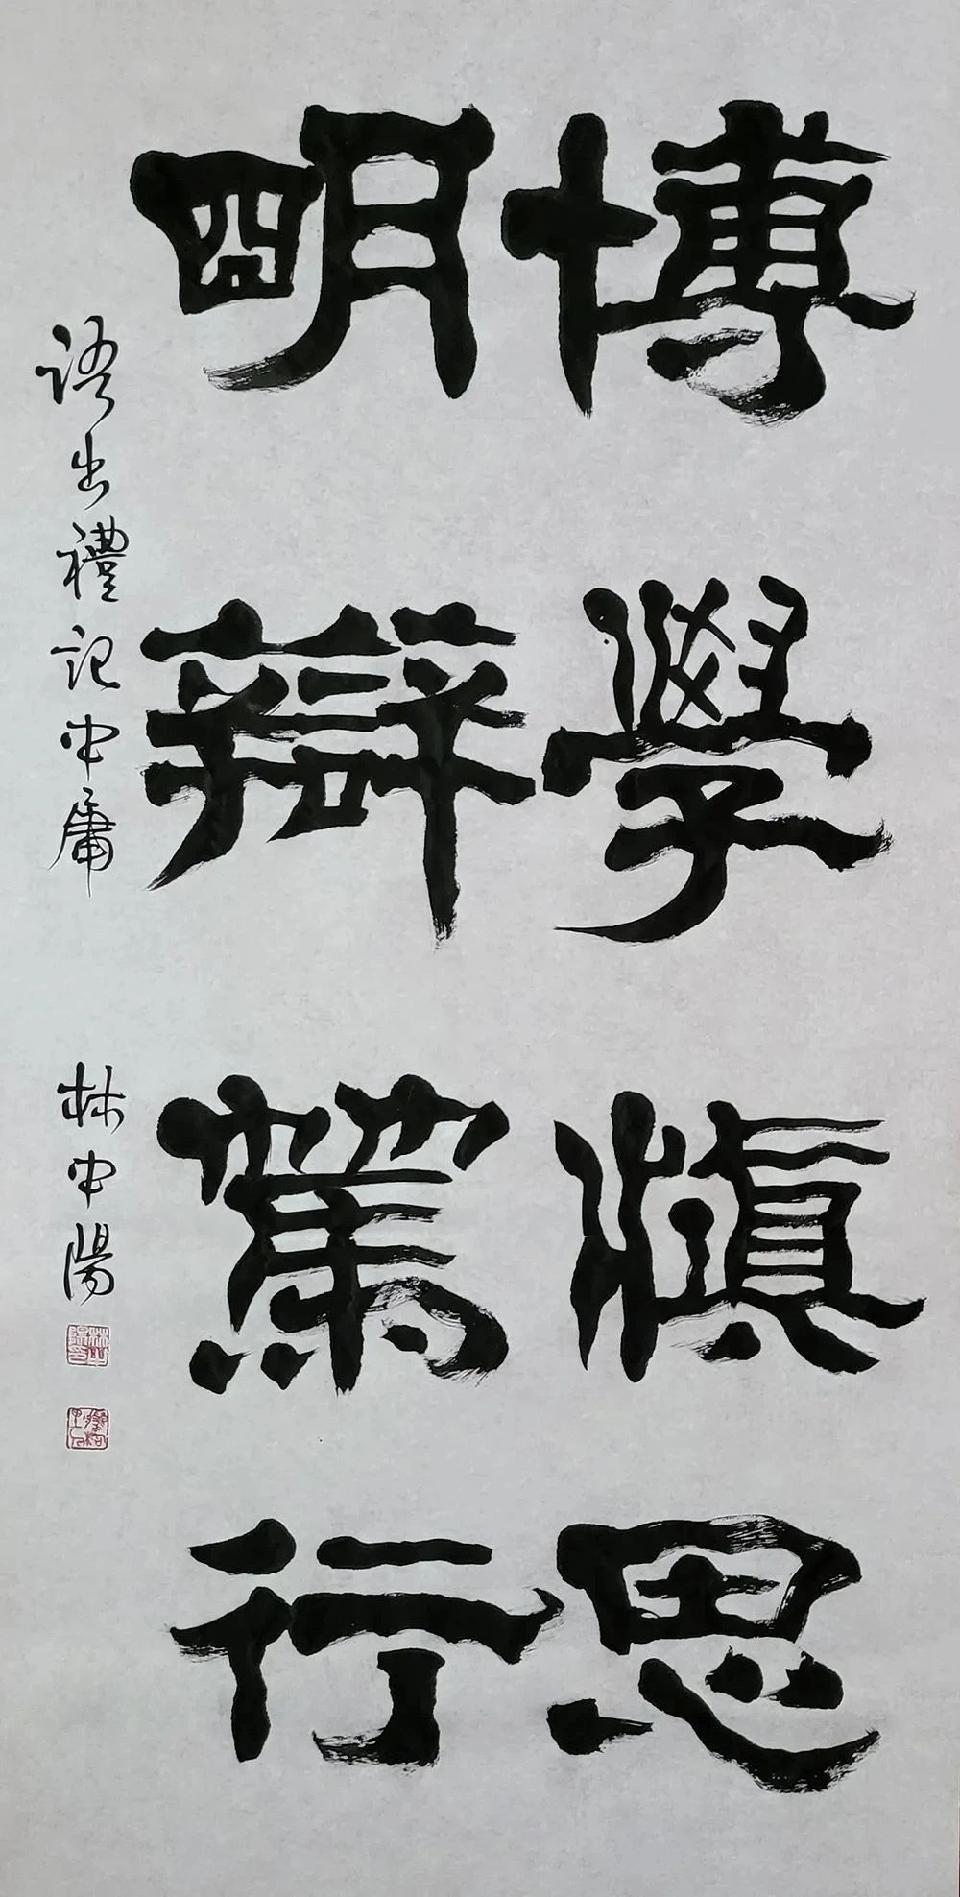 博學慎思
明辯篤行
語出禮記中庸 林中陽